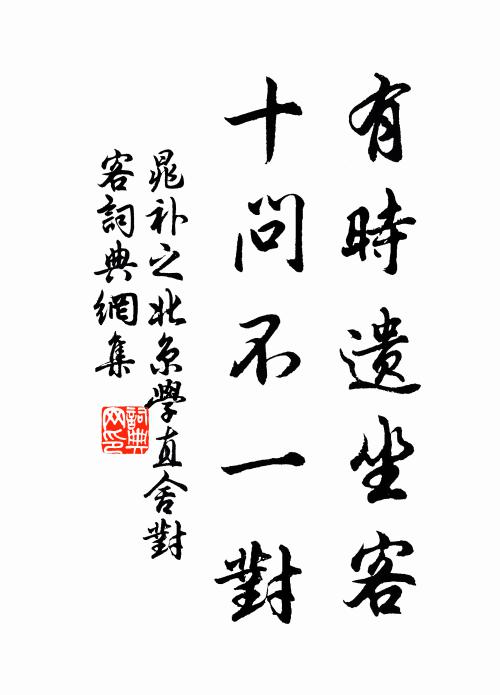 有時遺坐客
十問不一對
晁补之北京學直舍對
客詞典網集
詞典
网印